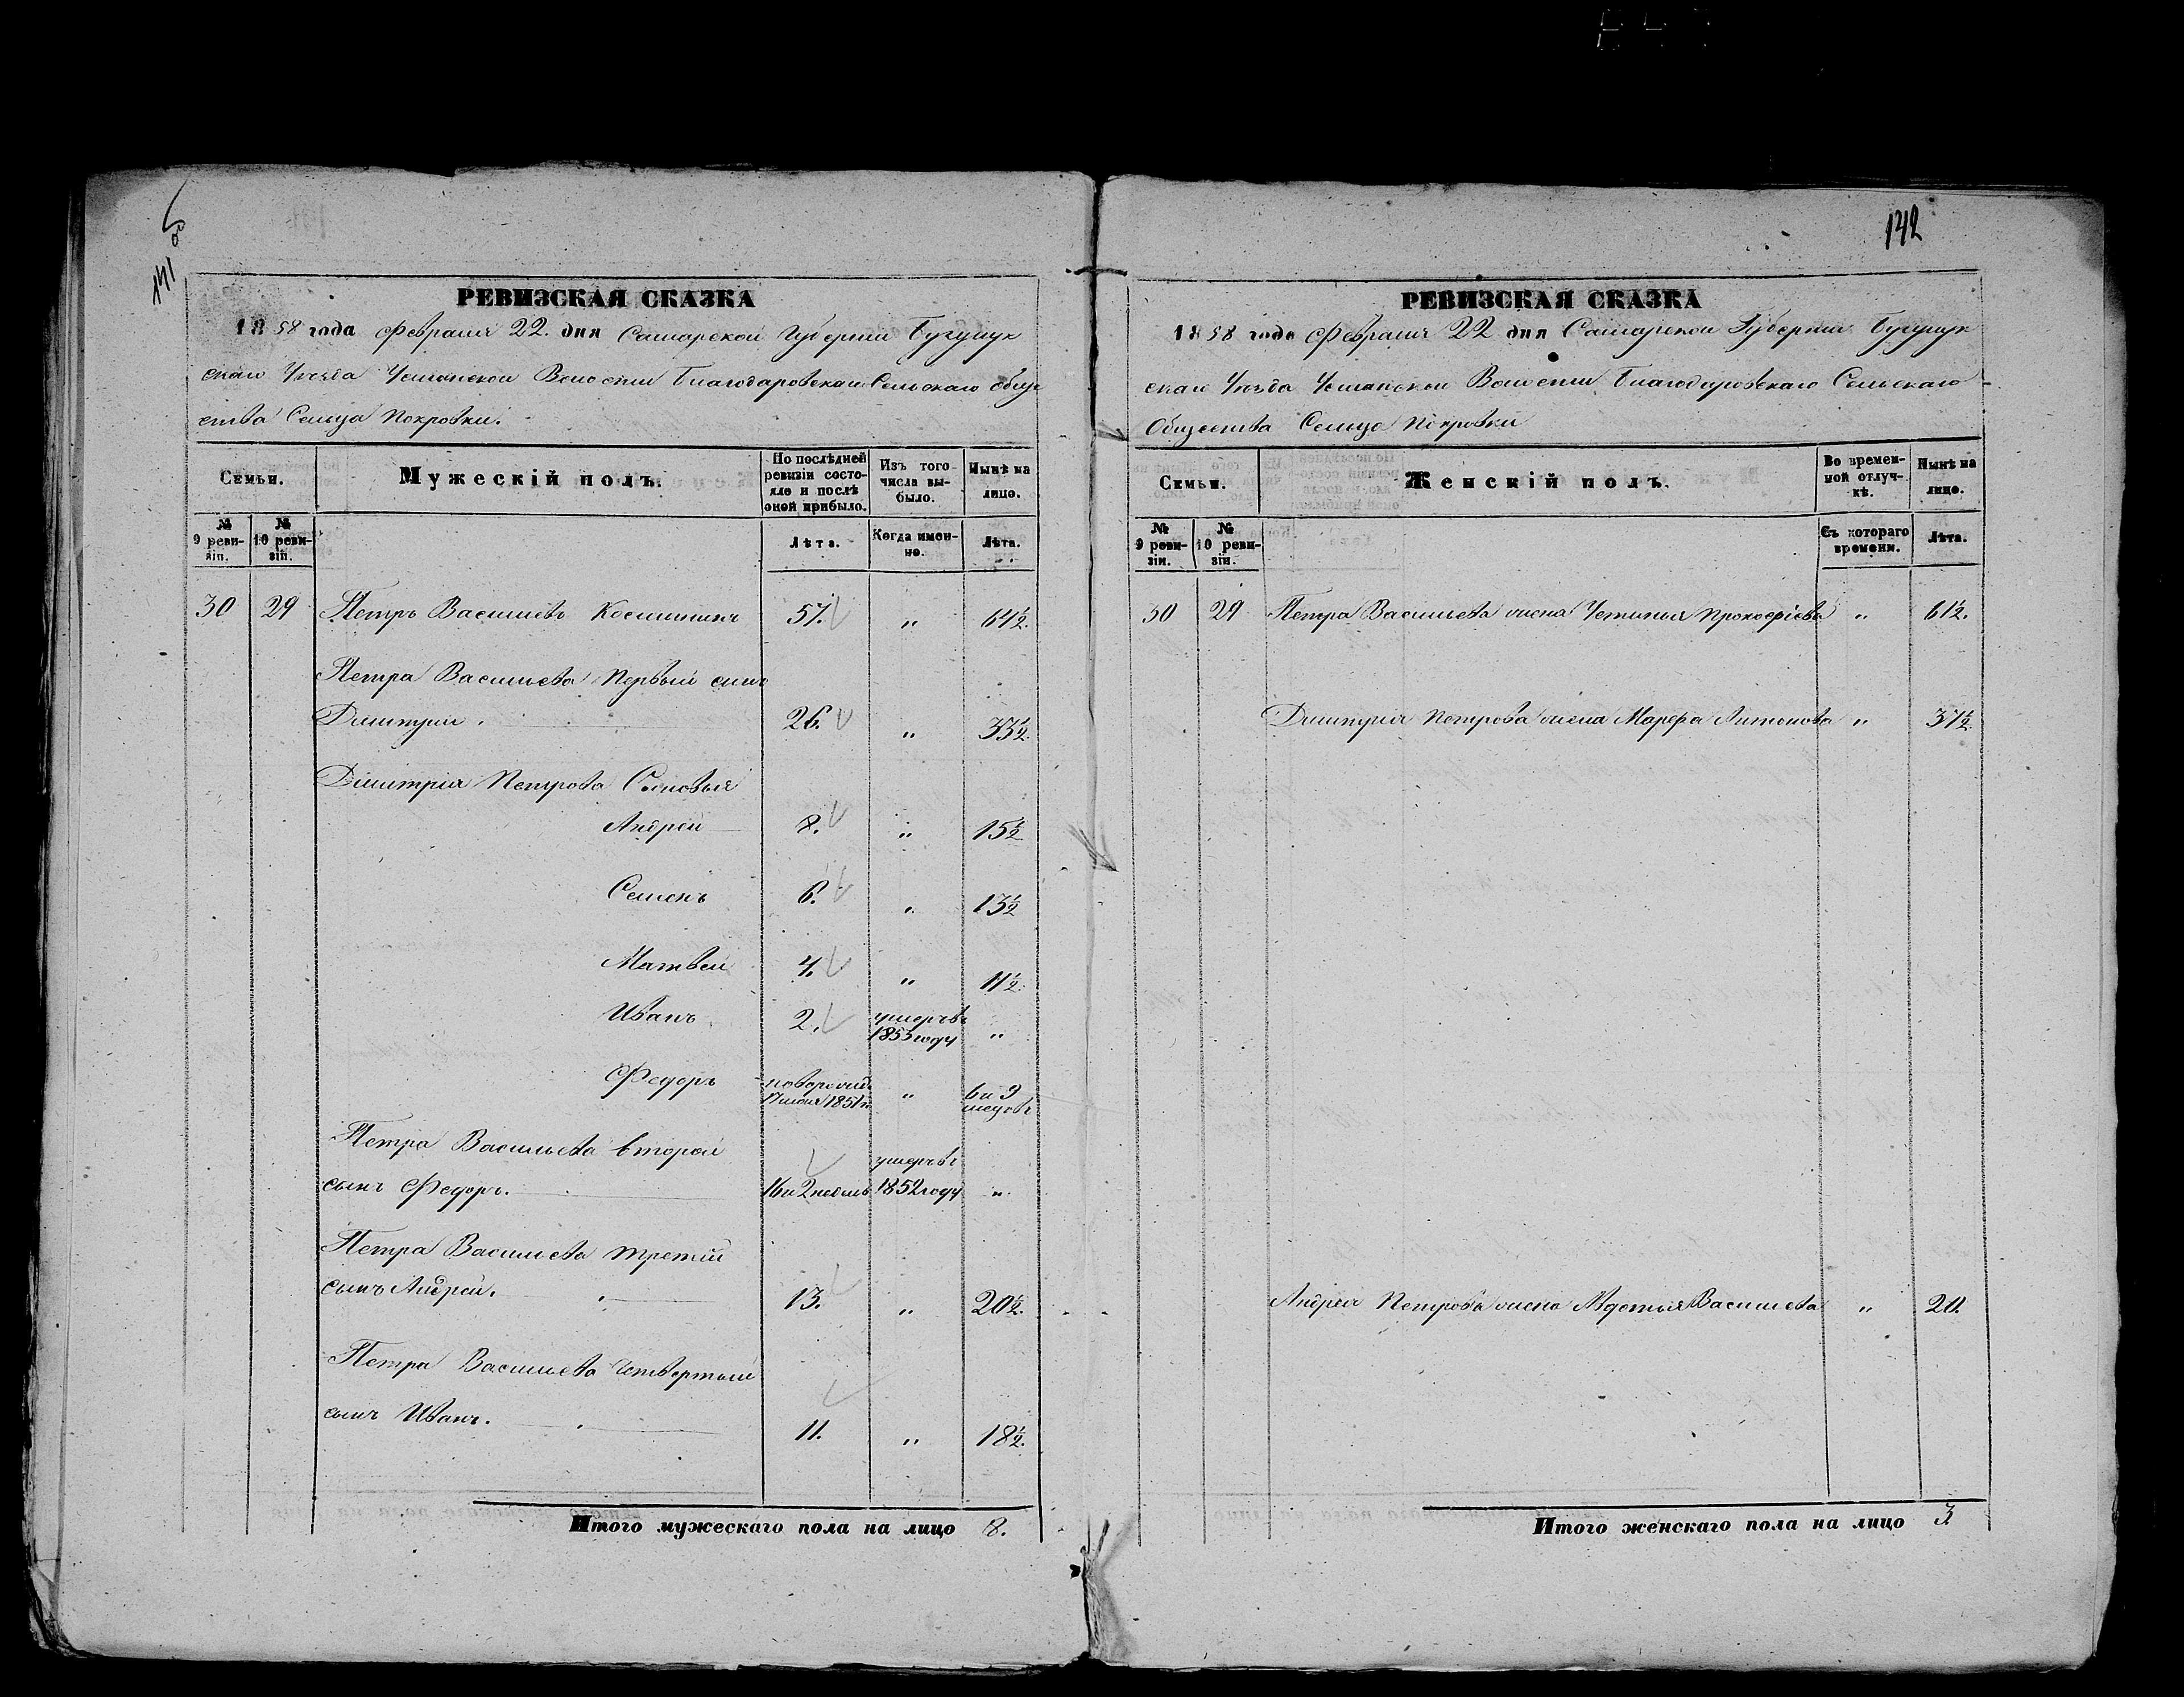 141 об
РЕВИЗСКАЯ СКАЗКА
1858 года Февраля 22. дня Самарской Губерніи Бугурук
скаго Уѣзда Волости Благодаровскаго Сельскаго обще
ства Сельца Покровки.
Семьи. Мужескій полъ. По послѣдней ревизіи состояло и послѣ оной прибыло. Изъ того числа выбыло. Нынѣ на лицо.
№ 9 ревизіи. № 10 ревизіи. Лѣта. Когда именно. Лѣта.
30 29 Петръ Васильевъ 57. " 64½.
Петра Васильева Первый сынъ
Димитрій. 26. " 33½.
Димитрія Петрова Сыновья
Андрей 8. " 15½
Семенъ 6. " 13½
Матвей 4. " 11½.
Иванъ 2. умеръ въ 1853 году "
Федоръ новорожд. 1851 " 6 и 9 месяцовъ
Петра Васильева второй
сынъ Федоръ. 16 и 2 недель умеръ въ 1852 году "
Петра Васильева третій
сынъ Андрей. 13. " 20½.
Петра Васильева четвертый
сынъ Иванъ. 11. " 18½.
Итого мужескаго пола на лицо 8.
142
РЕВИЗСКАЯ СКАЗКА
1858 года Февраля 22 дня Самарской Губерніи Бугурук
скаго Уѣзда Волости Благодаровскаго Сельскаго
Общества Сельца Покровки
Семьи. Женскій полъ. Во временной отлучкѣ. Нынѣ на лицо.
№ 9 ревизіи. № 10 ревизіи. Съ котораго времени. Лѣта.
30 29 Петра Васильева жена Устинья Прокофіева " 61½.
Димитрія Петрова жена Марфа Антонова " 37½.
Андрея Петрова жена Авдотья Васильева " 20.
Итого женскаго пола на лицо 3